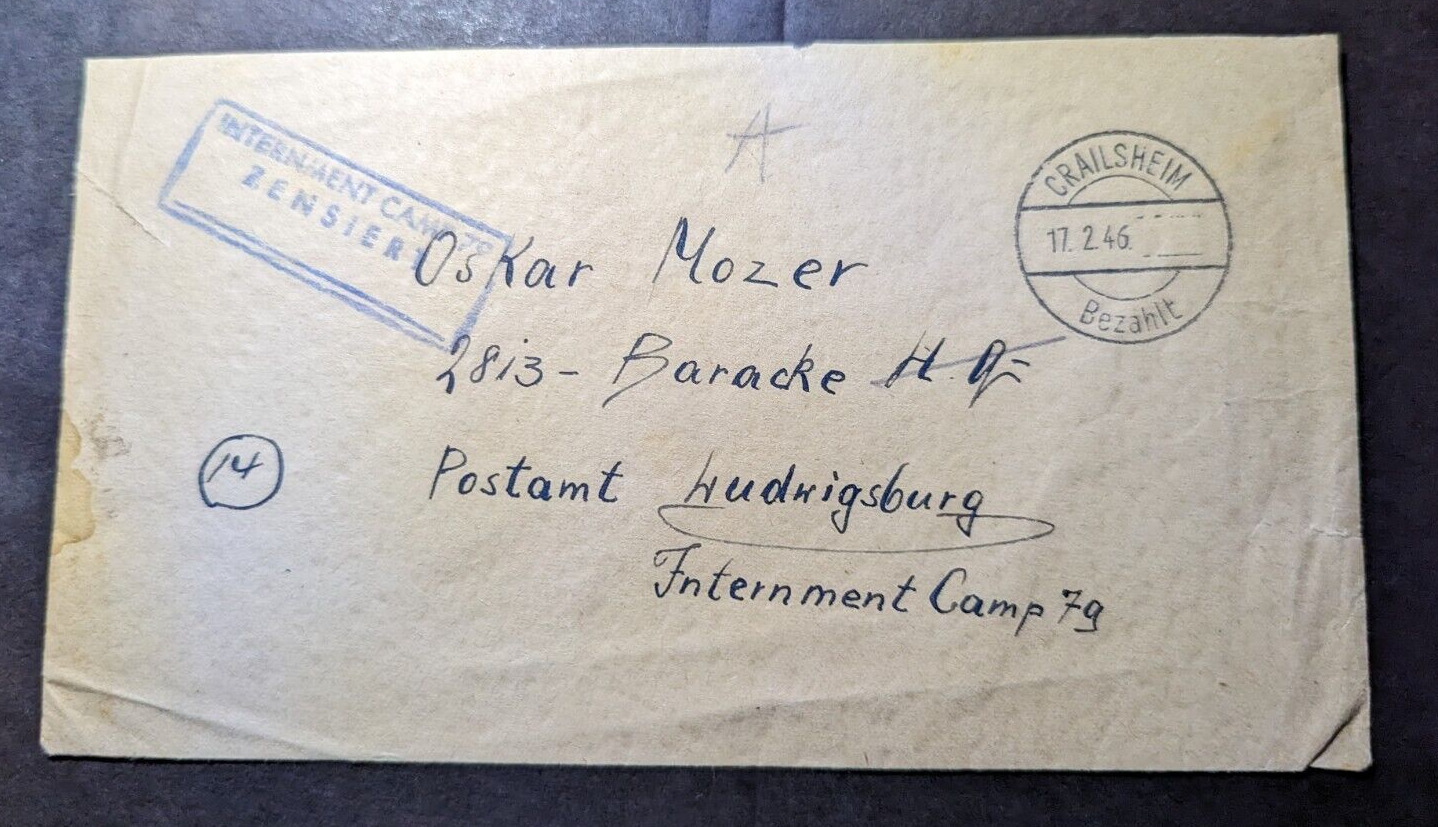 INTERNMENT CAMP 79
ZENSIERT
A
CRAILSHEIM
17. 2. 46.
Bezahlt
Oskar Mozer
2813 - Baracke H. Q=
14
Postamt Ludwigsburg
Internment Camp 79